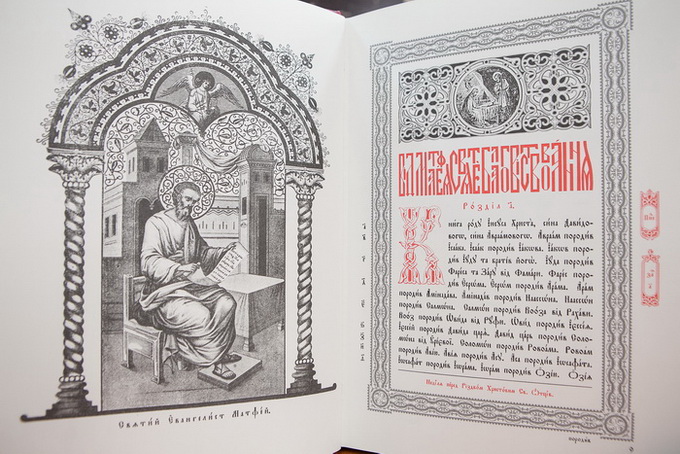 Свѧтий Євангелист Матфїй.
Розділ 1.
Книга роду Ісуса Христа, сина Давидо-
вого, сина Авраамового. Авраам породив
Ісаака. Ісаак породив Іакова. Іаков поро-
див Юду та братів його. Юда породив
Фареса та Зару від Фамари. Фарес по-
родив Есрома. Есром породив Арама. Арам
породив Амінадава. Амінадав породив Наассона. Наассон
породив Салмона. Салмон породив Вооза від Рахави.
Вооз породив Овида від Руфи. Овид породив Ієссея.
Ієссей породив Давида царя. Давид цар породив Соло-
мона від Урієвої. Соломон породив Ровоама. Ровоам
породив Авію. Авія породив Асу. Аса породив Іосафата.
Іосафат породив Іорама. Іорам породив Озію. Озія
Неділя перед Різдвом Христовим Св. Отців.
породив